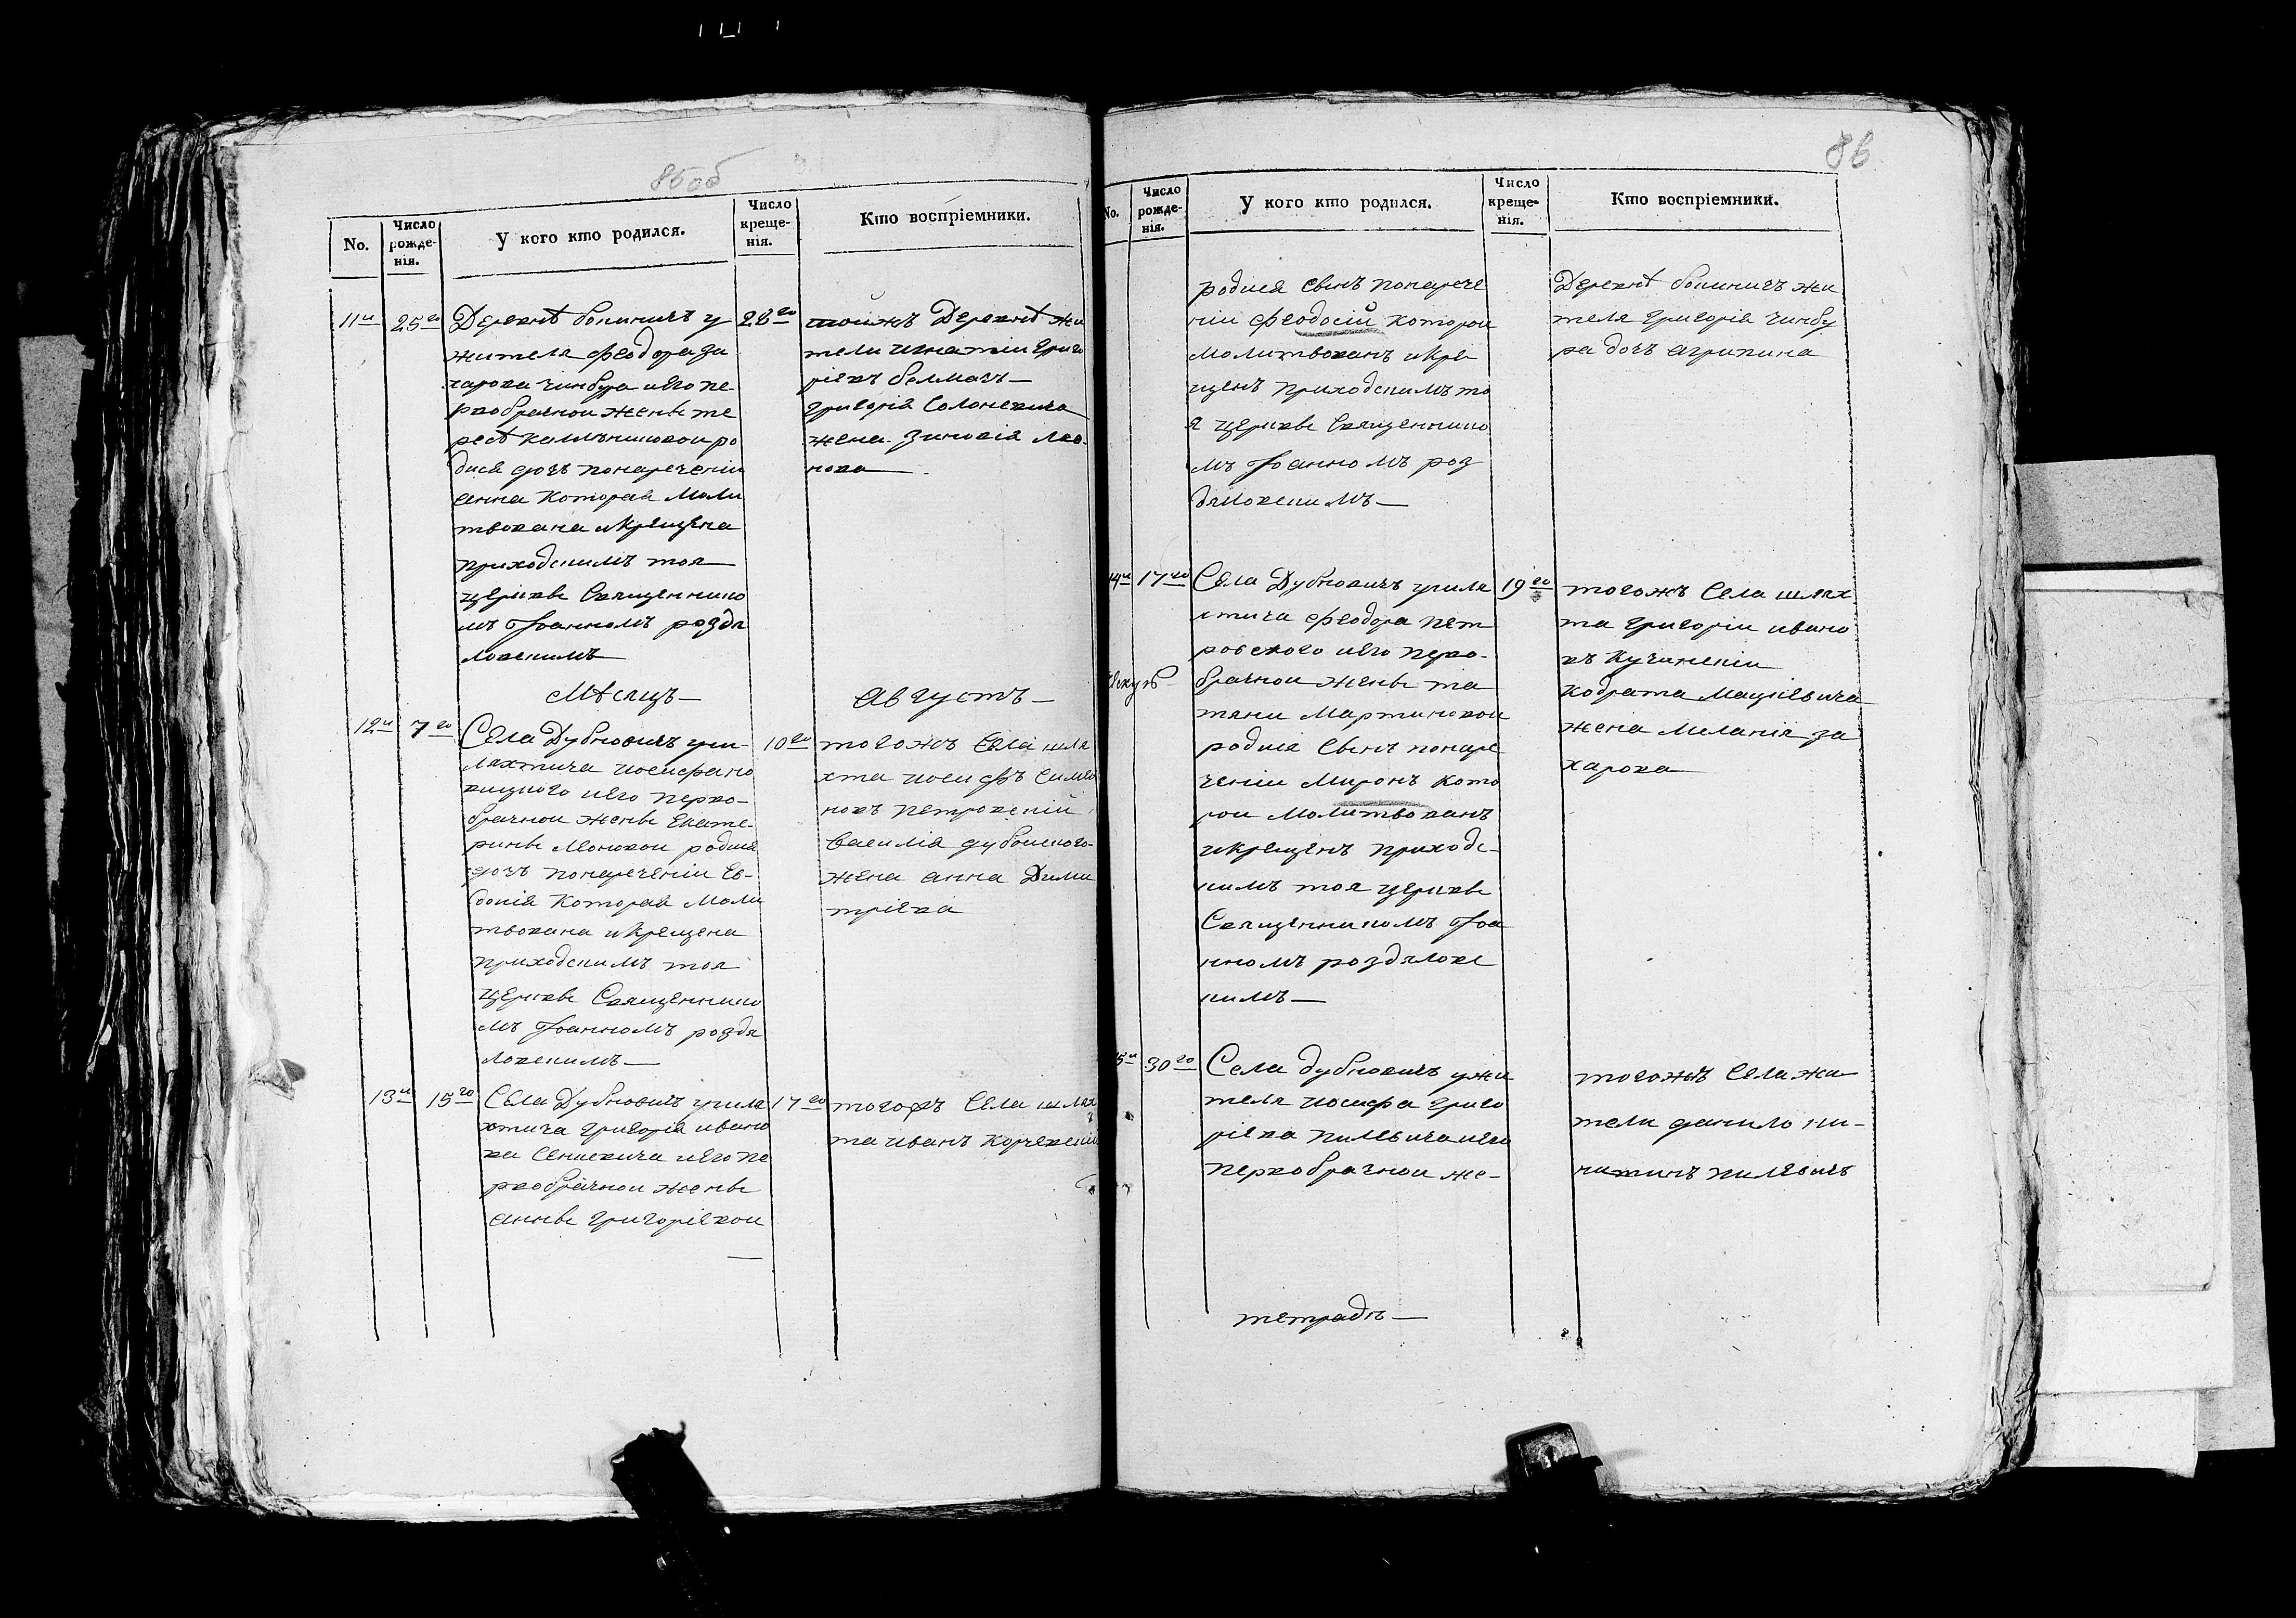 85об
No.
Число рожде-
нія.
У кого кто родился.
Число креще-
нія.
Кто воспріемники.
11й 25го
Деревнѣ бокиничъ у
жителя Феодора За
харова чинбура иего пе
рвобрачнои женѣ те
ресѣ калѣниковои ро
дися дочъ понареченіи
анна Которая Моли
твована икрещена
приходскимъ тоя
церкве Священнико
мъ Іоанномъ роздя
ловскимъ
28го
тойжъ Деревнѣ жи
тели игнатіи григо
ріевъ
григорія Солоневича
жена Зиновія Лво
нова
Мѣсяцъ Августъ
12й 7го
Села Дубновичъ у шля
хтича иосифа но
вицкого иего перво-
брачнои женѣ Екате-
ринѣ родися
дочъ понареченіи Ев-
докія Которая Моли
твована икрещена
приходскимъ тоя
церкве Священнико
мъ Іоанномъ роздя
ловскимъ
10го
тогожъ Села шля
хта иосифъ Симео
новъ петровскій
василія дубоиского
жена анна Дими
тріева
13й 15го
Села Дубновичъ ушля
хтича григорія ивано
ва Сенкевича иего пе
рвобрачнои женѣ
аннѣ григоріевои
17го
тогожъ Села шлях
та иванъ Корчевскій
86
No.
Число рожде-
нія.
У кого кто родился.
Число креще-
нія.
Кто воспріемники.
родися Свинъ понарече
ніи Феодосій которои
молитвованъ икре
щенъ приходскимъ то
я церкве Священнико
мъ Іоанномъ роз
дяловскимъ
Деревнѣ бокиничъ жи
теля григорія чинбу
ра дочъ агрипина
14й 17го
Села Дубновичъ ушля
хтича Феодора пет
ровского иего перво-
брачнои женѣ та
тяни Мартиновои
родися Свинъ понаре
ченіи Миронъ кото
рои Молитвованъ
икрещенъ приходс-
кимъ тоя церкве
Священникомъ Іоа
нномъ роздялове
кимъ
19го
тогожъ Села шлях
та григоріи ивано
въ Кучинскіи
кодрата Мацкевича
жена Меланія за
харова
15й 30го
Села Дубновичъ ужи
теля иосифа григо
ріева пилевича иего
первобрачнои же-
тогожъ Села жи
тели данило ни-
китинъ пилевичъ
тетрадь